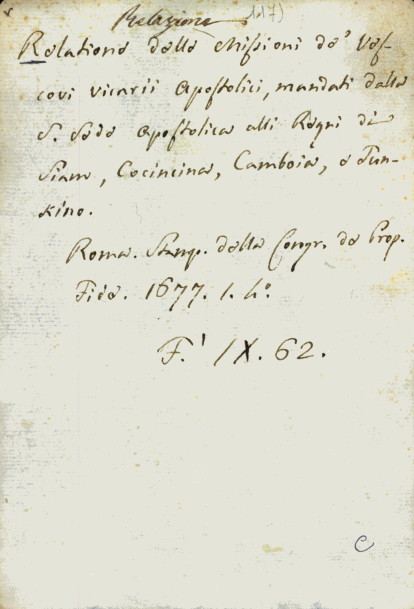 Relazione 1217)
Relatione delle Missioni de' Ves-
covi vicarii Apostolici, mandati dalla
S. Sede Apostolica alli Regni di
Siam, Cocincina, Camboia, e Tun-
kino.
Roma. Stamp. della Congr. de Prop.
Fide. 1677. 1. 4°.
F.' IX. 62.
C